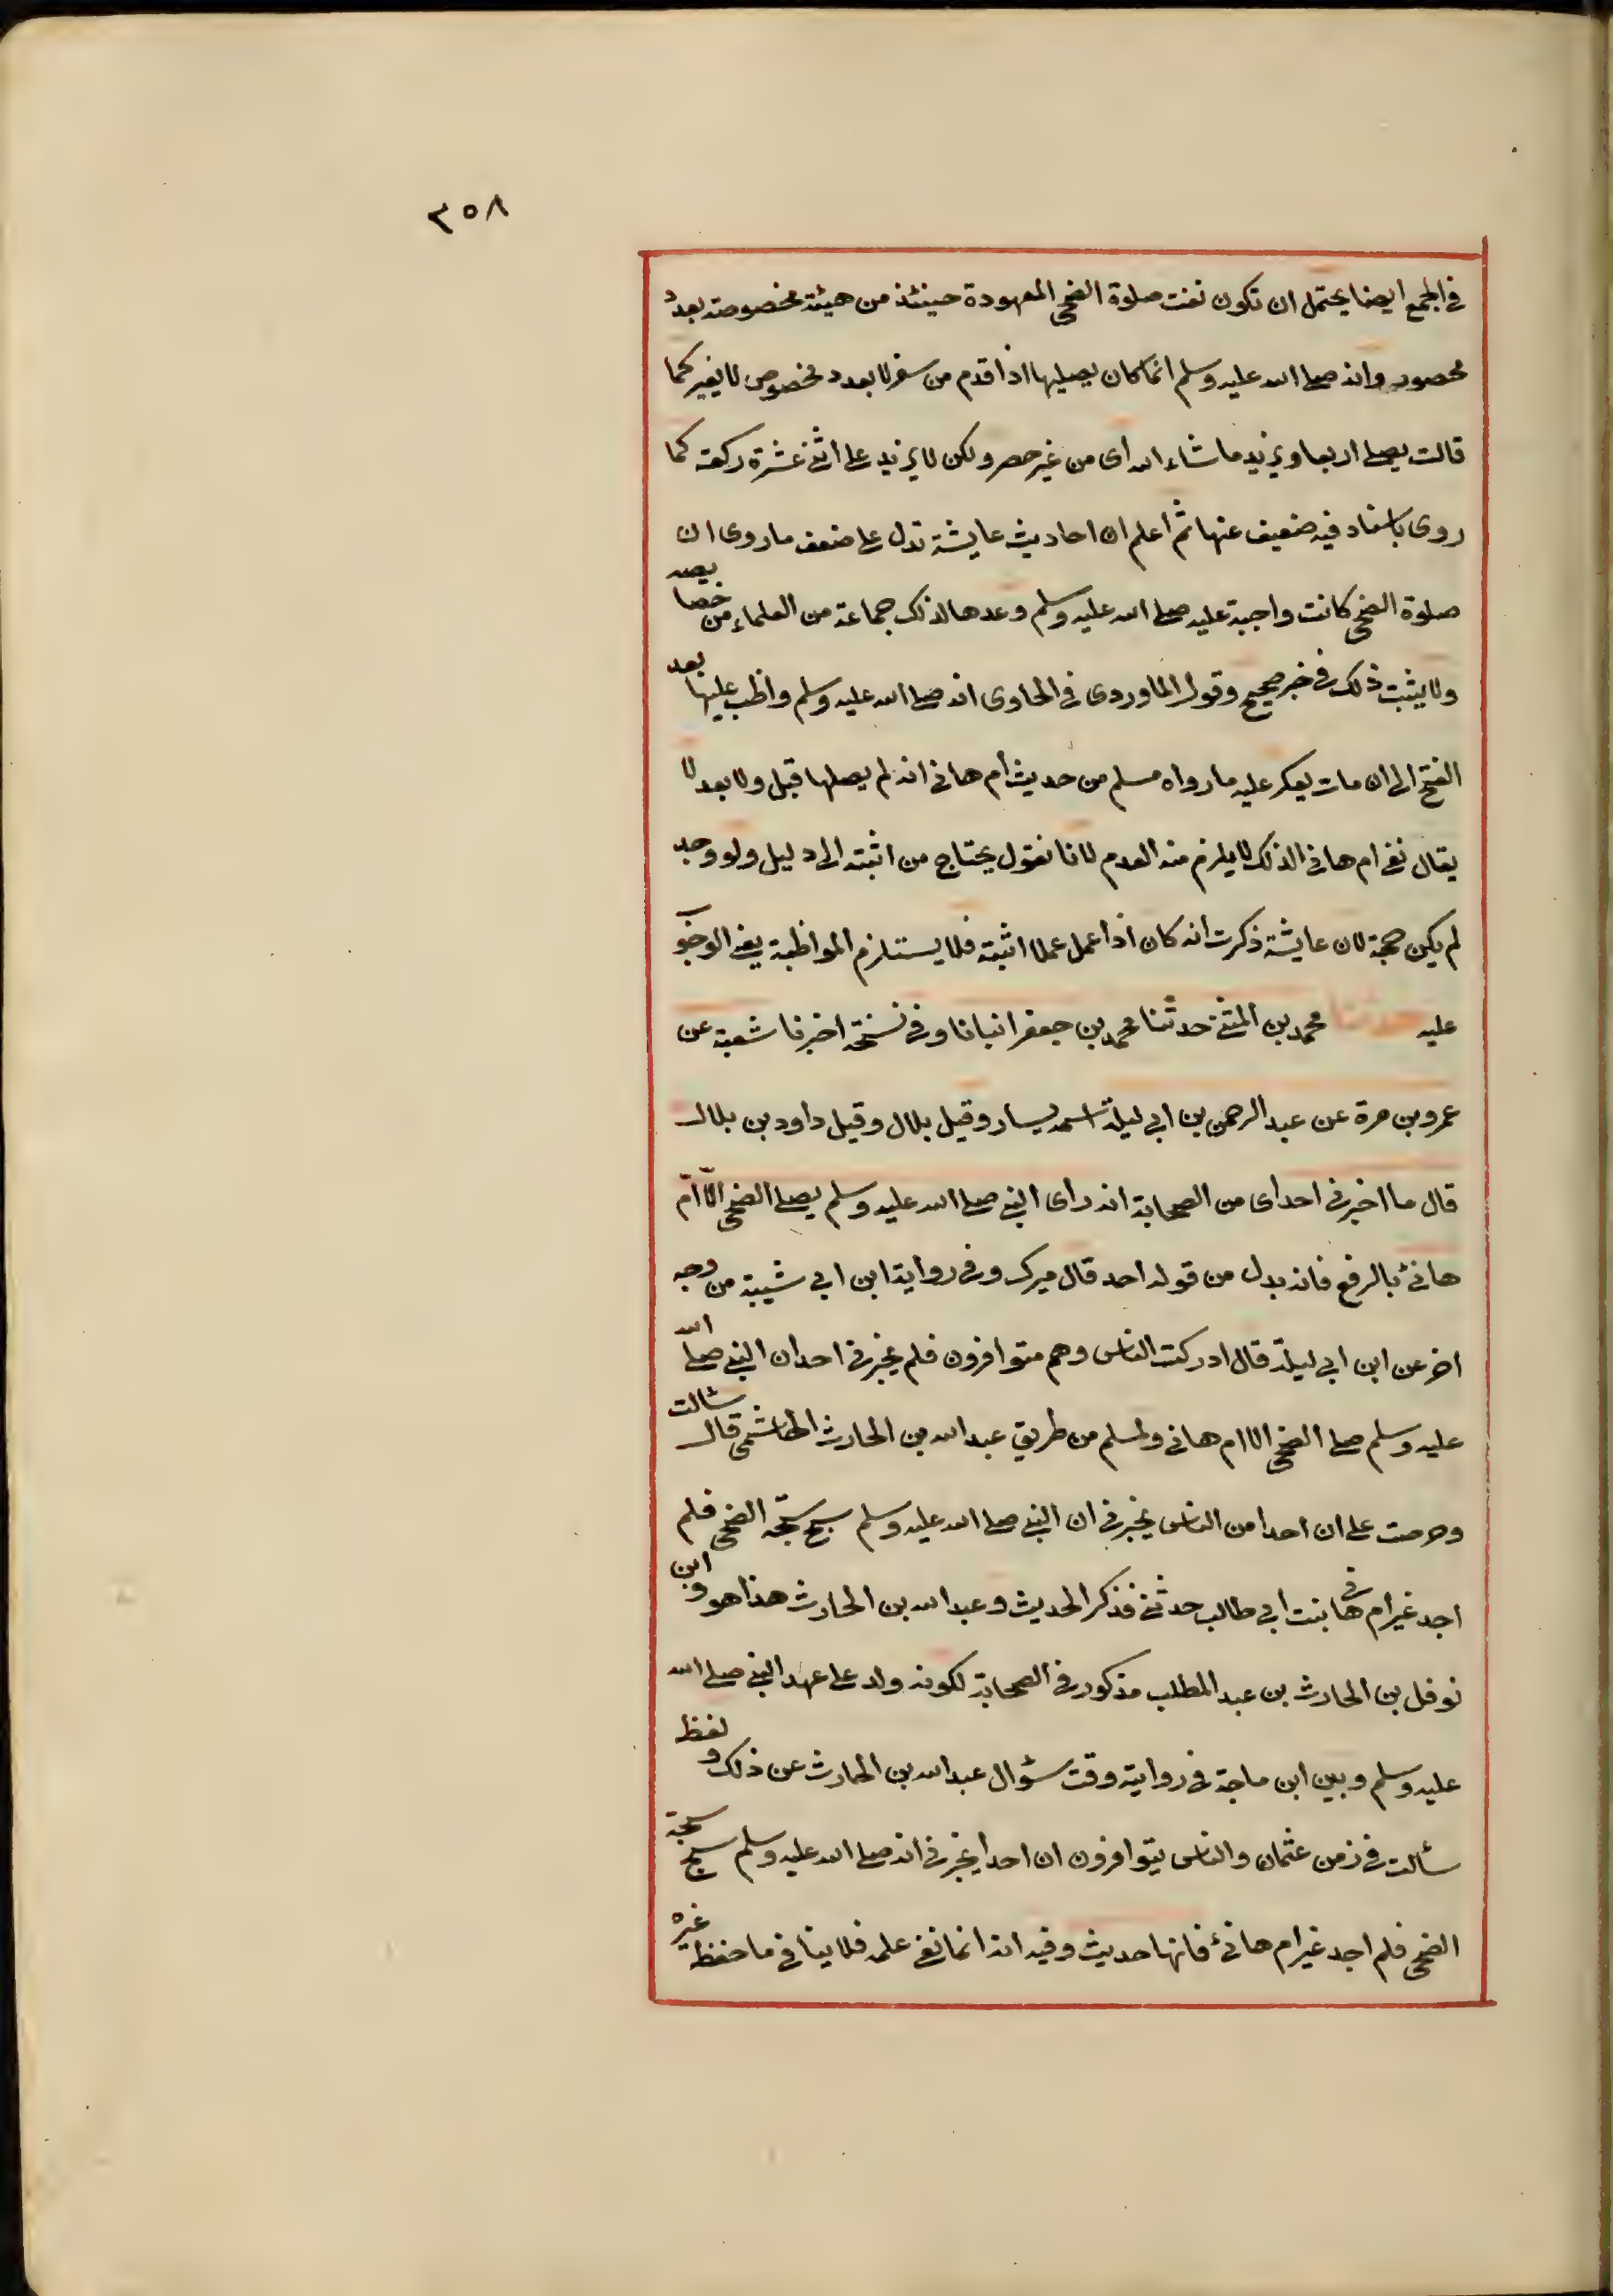 ٣٥٨
في الجمع ايضا يحتمل ان تكون نفت صلوة الضحى المعهودة حينئذ من هيئة مخصوصة بعدد
محصور وانه صلى الله عليه وسلم انما كان يصليها اذا قدم من سفر لا بعدد مخصوص لا يغير كما
قالت يصلى اربعا ويزيد ما شاء الله اى من غير حصر ولكن لا يزيد على اثنى عشرة ركعة كما
روى باسناد فيه ضعيف عنها ثم اعلم ان احاديث عايشة تدل على ضعف ما روى ان
صلوة الضحى كانت واجبة عليه صلى الله عليه وسلم وعدها لذلك جماعة من العلماء من خصايصه
ولا يثبت ذلك في خبر صحيح وقول الماوردى في الحاوى انه صلى الله عليه وسلم واظب عليها بعد
الفتح الى ان مات يعكر عليه ما رواه مسلم من حديث أم هانى انه لم يصلها قبل ولا بعد لا
يقال نفى ام هانى لذلك لا يلزم منه العدم لانا نقول يحتاج من اثبته الى دليل ولو وجد
لم يكن حجة لان عايشة ذكرت انه كان اذا عمل عملا اثبته فلا يستلزم المواظبة يعنى الوجوب
عليه حدثنا محمد بن المثنى حدثنا محمد بن جعفر انبانا وفي نسخة اخبرنا شعبة عن
عمرو بن مرة عن عبد الرحمن بن ابي ليلة اسمه يسار وقيل بلال وقيل داود بن بلال
قال ما اخبرنى احد اى من الصحابة انه راى النبي صلى الله عليه وسلم يصلى الضحى الّا امّ
هانئ بالرفع فانه بدل من قوله احد قال ميرك وفي رواية ابن ابي شيبة من وجه
اخر عن ابن ابي ليلة قال ادركت الناس وهم متوافرون فلم يخبرنى احد ان النبي صلى الله
عليه وسلم صلى الضحى الا ام هانى ولمسلم من طريق عبد الله بن الحارث الهاشمى قال سئالت
وحرصت على ان احدا من الناس يخبرنى ان النبي صلى الله عليه وسلم سبح سبّحة الضحى فلم
اجد غير ام هانى بنت ابي طالب حدثنى فذكر الحديث وعبد الله بن الحارث هذا هو ابن
نوفل بن الحارث بن عبد المطلب مذكور في الصحابة لكونه ولد على عهد النبي صلى الله
عليه وسلم وبين ابن ماجة في روايته وقت سؤال عبد الله بن الحارث عن ذلك ولفظه
سئالت في زمن عثمان والناس يتوافرون ان احدا يخبرنى انه صلى الله عليه وسلم سبح سبحة
الضحى فلم اجد غير ام هانئ فانها حديث وفيه انه انما نفى علمه فلا ينافى ما حفظه غيره